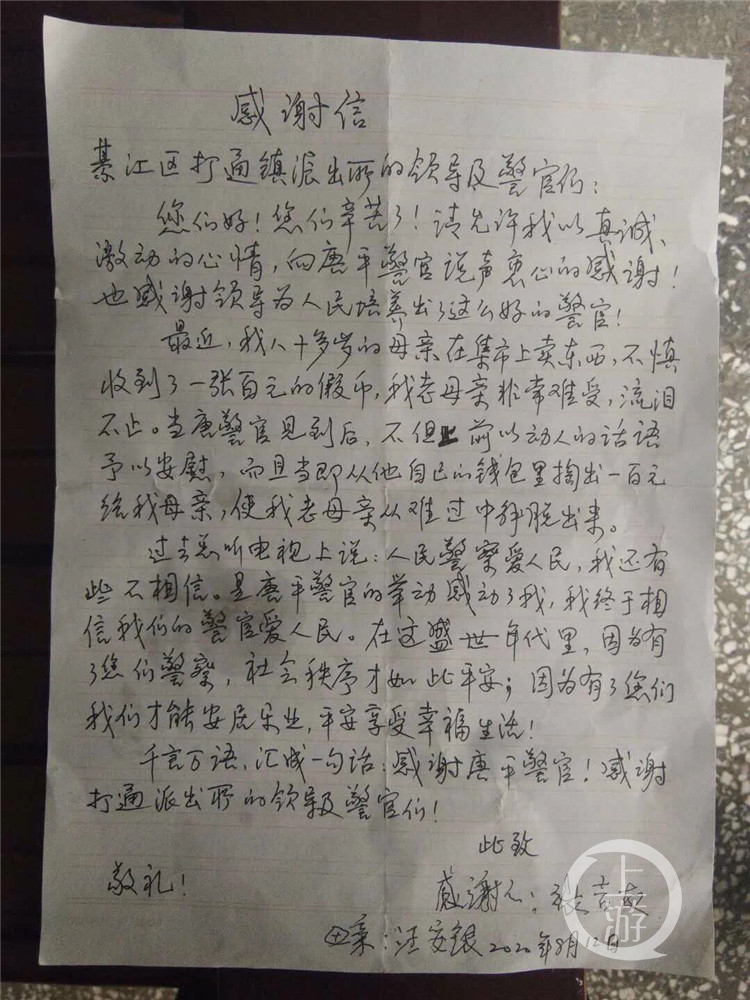 感谢信
綦江区打通镇派出所的领导及警官们：
您们好！您们辛苦了！请允许我以真诚、
激动的心情，向唐平警官说声衷心的感谢！
也感谢领导为人民培养出了这么好的警官！
最近，我八十多岁的母亲在集市上卖东西，不慎
收到了一张百元的假币，我老母亲非常难受，流泪
不止。当唐警官见到后，不但上前以动人的话语
予以安慰，而且当即从他自己的钱包里掏出一百元
给我母亲，使我老母亲从难过中挣脱出来。
过去总听电视上说：人民警察爱人民，我还有
些不相信。是唐平警官的举动感动了我，我终于相
信我们的警官爱人民。在这盛世年代里，因为有
了您们警察，社会秩序才如此平安；因为有了您们
我们才能安居乐业，平安享受幸福生活！
千言万语，汇成一句话：感谢唐平警官！感谢
打通派出所的领导及警官们！
此致
敬礼！
感谢人：张
母亲：汪安银 2020年8月12日
上游